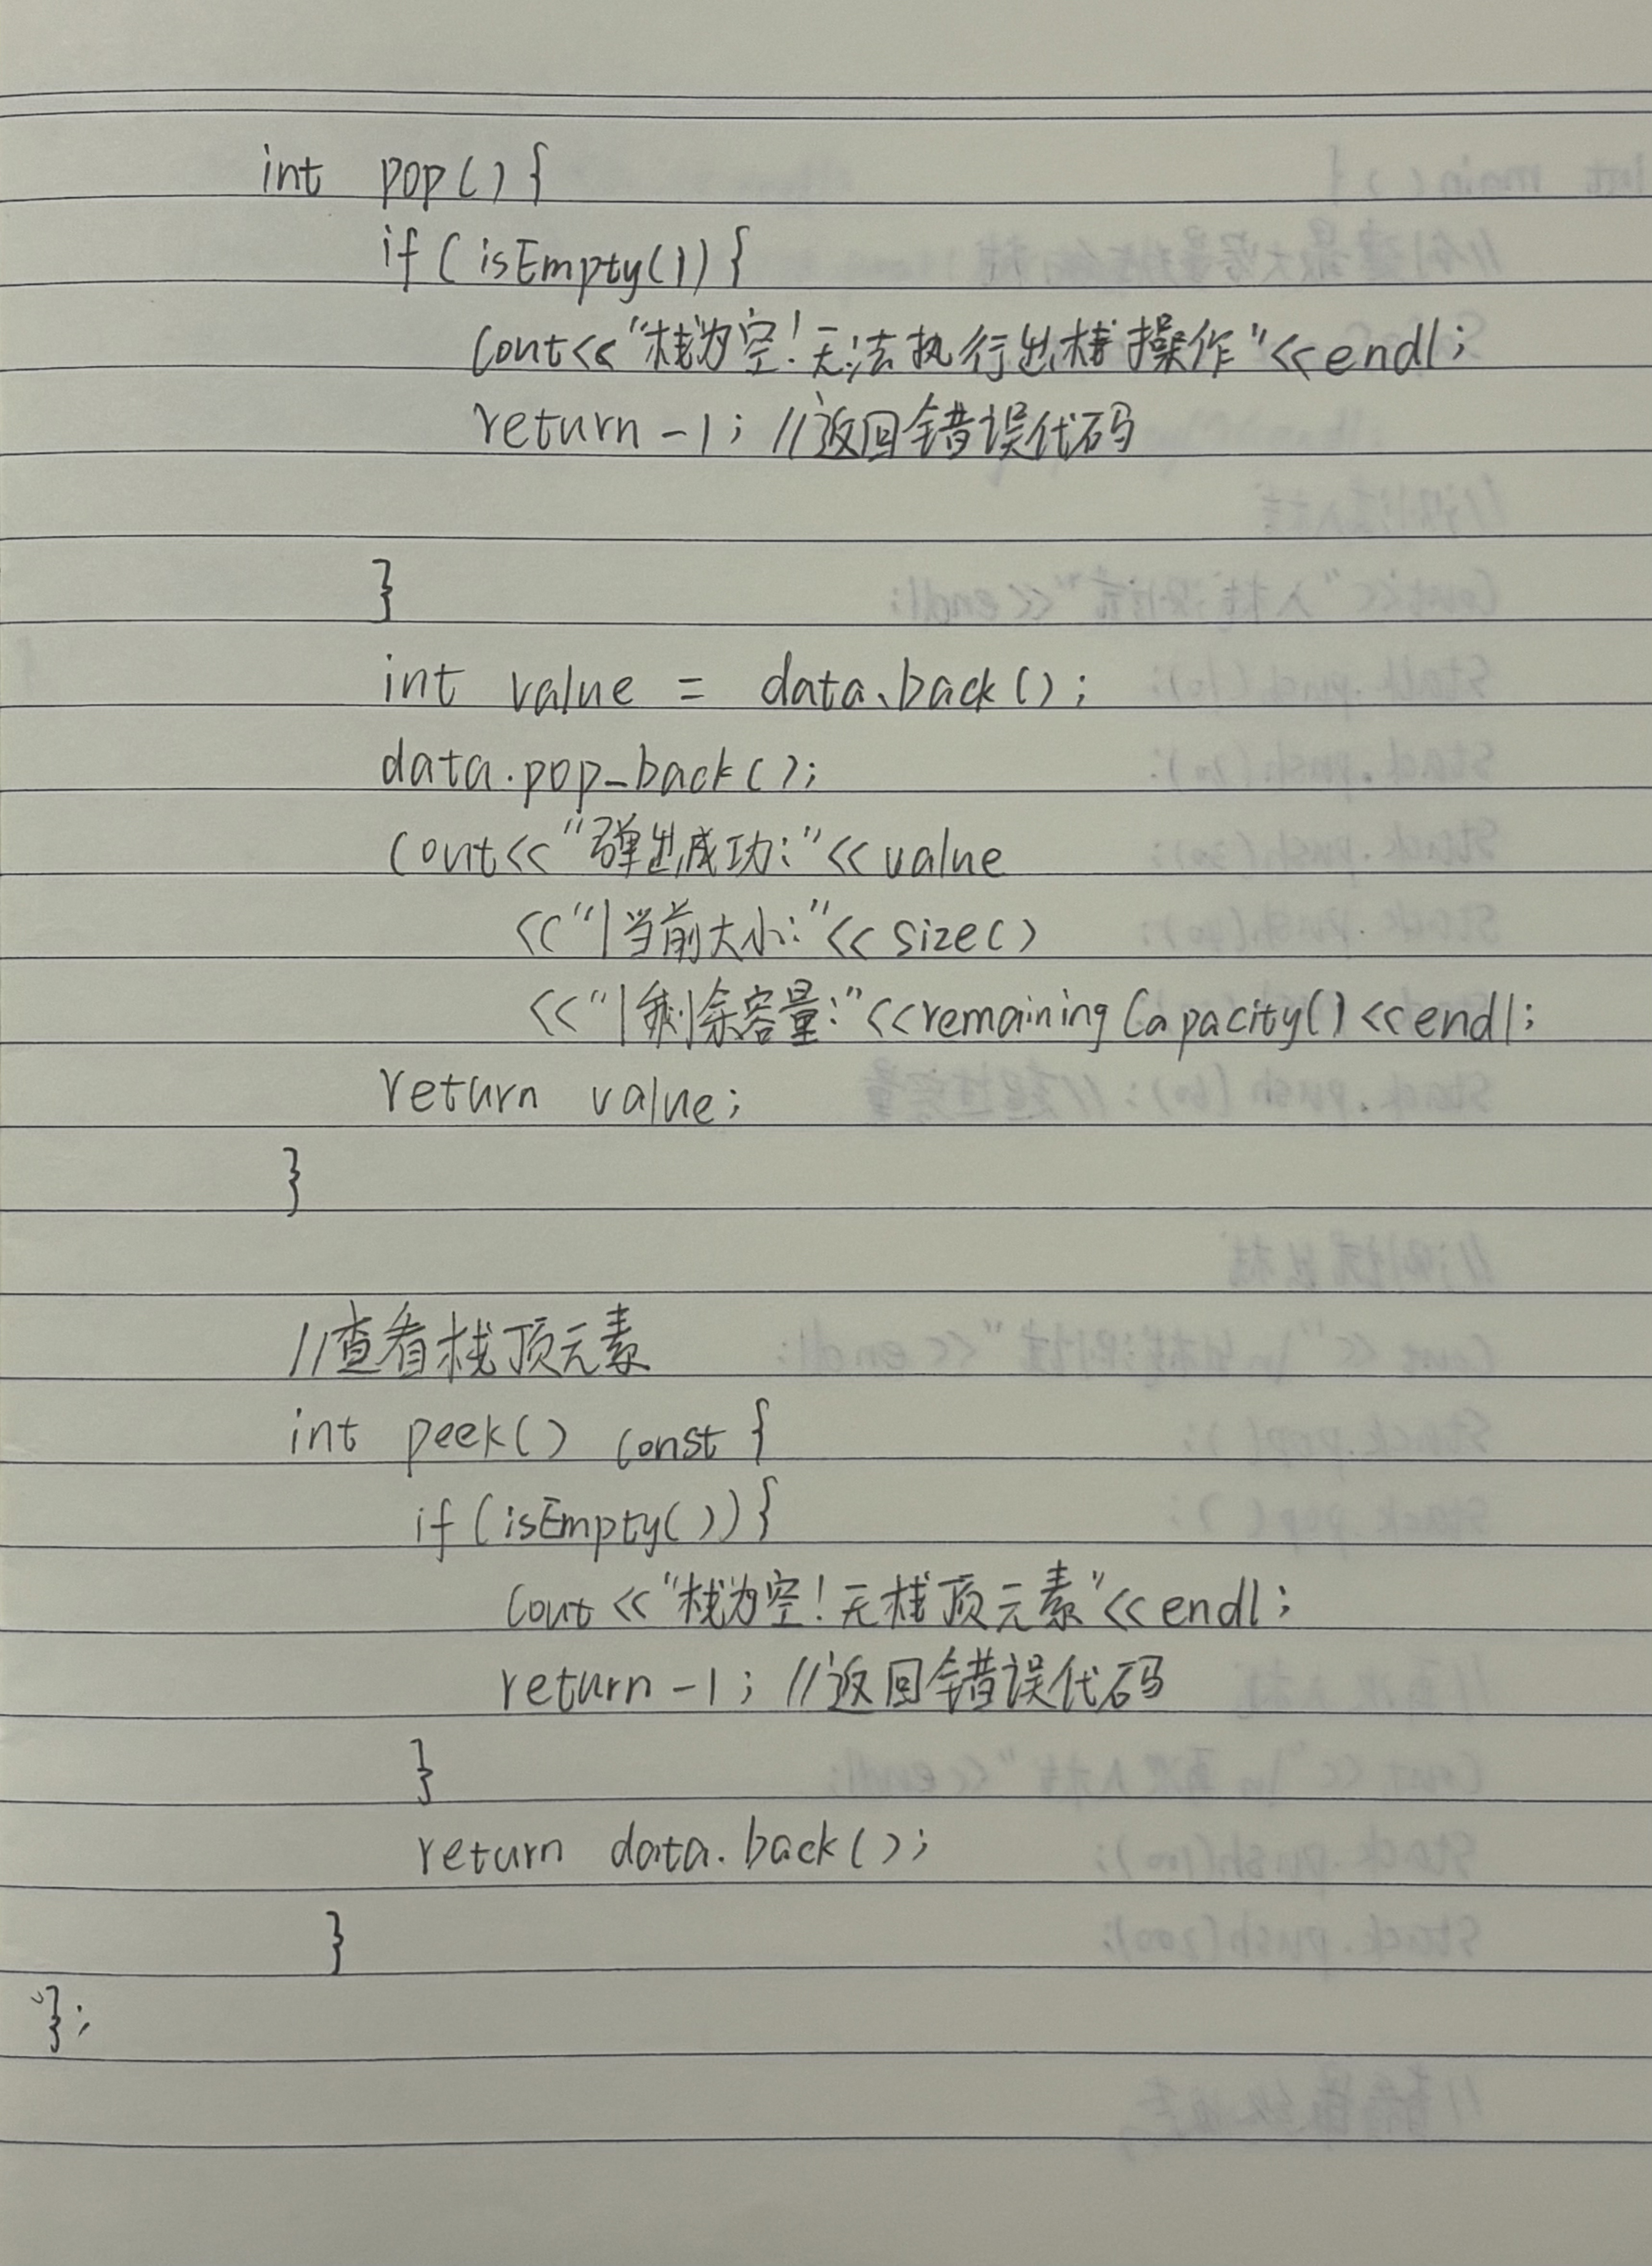 int pop(){
if(isEmpty()){
cout<<"栈为空!无法执行出栈操作"<<endl;
return -1; //返回错误代码
}
int value = data.back();
data.pop_back();
cout<<"弹出成功:"<<value
<<"|当前大小:"<<size()
<<"|剩余容量:"<<remainingCapacity()<<endl;
return value;
}
//查看栈顶元素
int peek() const {
if(isEmpty()){
cout<<"栈为空!无栈顶元素"<<endl;
return -1; //返回错误代码
}
return data.back();
}
};